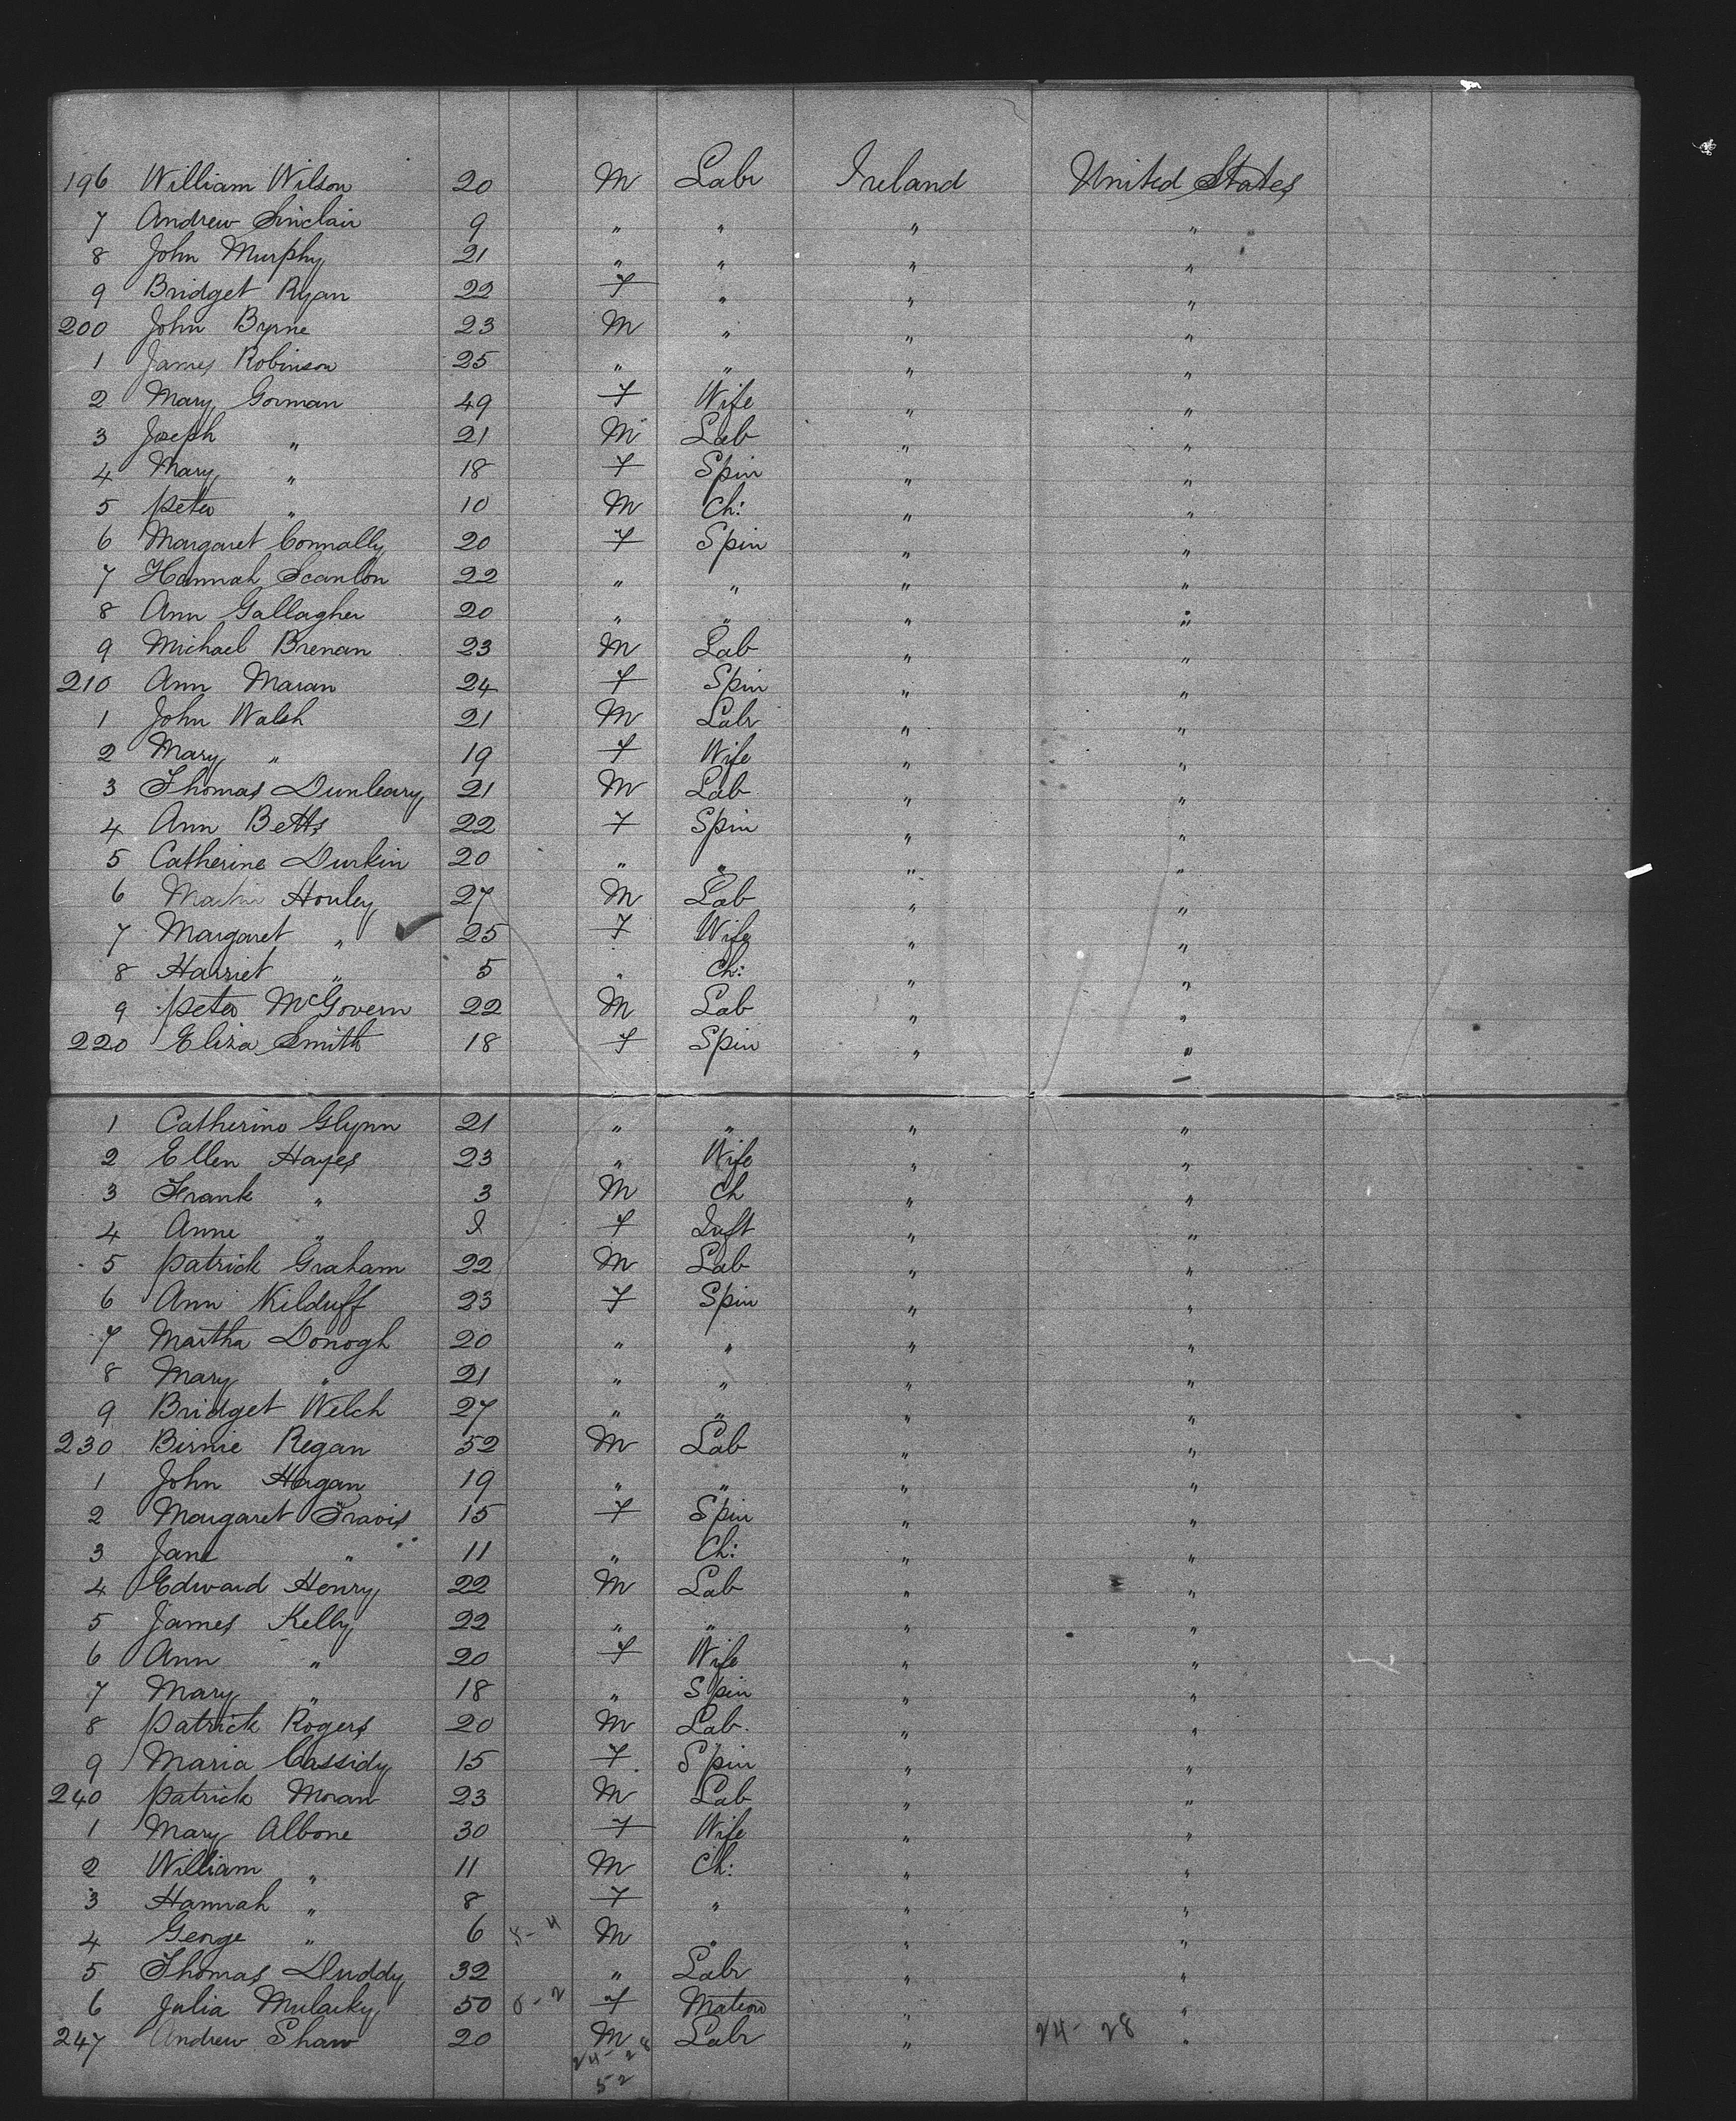 196 William Wilson 20 M Labr Ireland United States
7 Andrew Sinclair 9 " " " "
8 John Murphy 21 " " " "
9 Bridget Ryan 22 F " " "
200 John Byrne 23 M " " "
1 James Robinson 25 " " " "
2 Mary Gorman 49 F Wife " "
3 Joseph " 21 M Lab " "
4 Mary " 18 F Spin " "
5 Peter " 10 M Ch: " "
6 Margaret Connally 20 F Spin " "
7 Hannah Scanlon 22 " " " "
8 Ann Gallagher 20 " " " "
9 Michael Brenan 23 M Lab " "
210 Ann Maran 24 F Spin " "
1 John Walsh 21 M Labr " "
2 Mary " 19 F Wife " "
3 Thomas Dunleavy 21 M Lab " "
4 Ann Betts 22 F Spin " "
5 Catherine Durkin 20 " " " "
6 Martin Houley 27 M Lab " "
7 Margaret " 25 F Wife " "
8 Harriet " 5 " Ch: " "
9 Peter McGovern 22 M Lab " "
220 Eliza Smith 18 F Spin " "
1 Catherine Glynn 21 " " " "
2 Ellen Hayes 23 " Wife " "
3 Frank " 3 M Ch " "
4 Anne " F Inft " "
5 Patrick Graham 22 M Lab " "
6 Ann Kilduff 23 F Spin " "
7 Martha Donogh 20 " " " "
8 Mary " 21 " " " "
9 Bridget Welch 27 " " " "
230 Birnie Regan 52 M Lab " "
1 John Hagan 19 " " " "
2 Margaret Travis 15 F Spin " "
3 Jane " 11 " Ch: " "
4 Edward Henry 22 M Lab " "
5 James Kelly 22 " " " "
6 Ann " 20 F Wife " "
7 Mary " 18 " Spin " "
8 Patrick Rogers 20 M Lab. " "
9 Maria Cassidy 15 F Spin " "
240 Patrick Moran 23 M Lab " "
1 Mary Albone 30 F Wife " "
2 William " 11 M Ch: " "
3 Hannah " 8 F " " "
4 George " 6 M " " "
5 Thomas Duddy 32 " Labr " "
6 Julia Mularky 50 F Matron " "
247 Andrew Shaw 20 M Labr " 24-28 "
24-28
52